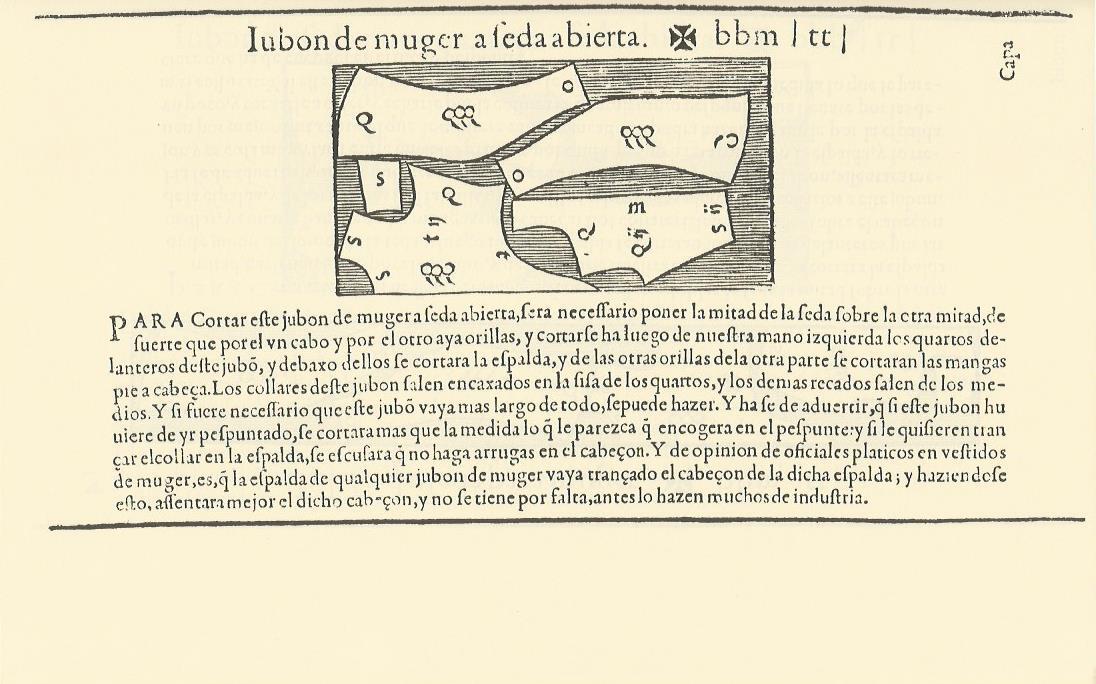 Iubon de muger a ſeda abierta. ✠ bbm | tt |
Capa
PARA Cortar eſte jubon de muger a ſeda abierta, ſera neceſſario poner la mitad de la ſeda ſobre la otra mitad, de
ſuerte que por el vn cabo y por el otro aya orillas, y cortarſe ha luego de nueſtra mano izquierda los quartos de-
lanteros deſte jubõ, y debaxo dellos ſe cortara la eſpalda, y de las otras orillas dela otra parte ſe cortaran las mangas
pie a cabeça. Los collares deſte jubon ſalen encaxados en la ſiſa de los quartos, y los demas recados ſalen de los me-
dios. Y ſi fuere neceſſario que eſte jubõ vaya mas largo de todo, ſepuede hazer. Y ha ſe de aduertir, q̃ ſi eſte jubon hu
uiere de yr peſpuntado, ſe cortara mas que la medida lo q̃ le parezca q̃ encogera en el peſpunte: y ſi le quiſieren tran
çar el collar en la eſpalda, ſe eſcuſara q̃ no haga arrugas en el cabeçon. Y de opinion de oficiales platicos en veſtidos
de muger, es, q̃ la eſpalda de qualquier jubon de muger vaya trançado el cabeçon de la dicha eſpalda; y haziendoſe
eſto, aſſentara mejor el dicho cabeçon, y no ſe tiene por falta, antes lo hazen muchos de induſtria.